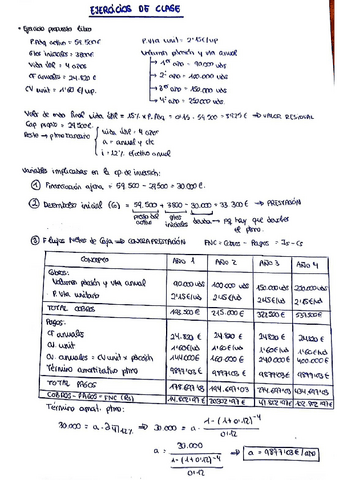 EJERCICIOS DE CLASE
• Ejercicio propuesto libro
P. Adq activo = 59.500€
P. Vta unit = 2'15€/up
Gtos iniciales = 3800€
Volumen pbación y vta anual
Vida útil = 4 años
→ 1er año - 90.000 uds
CF anuales = 24.820 €
→ 2º año - 100.000 uds
CV unit = 1'60 €/up.
→ 3er año - 150.000 uds
→ 4º año - 250.000 uds.
Valor de mdo final vida útil = 15% x P. Adq = 0'15 · 59.500 = 8925 € → VALOR RESIDUAL
Cap propio = 29.500€.
Resto → ptmo bancario
vida útil = 4 años
a = anual y cte
i = 12% efectivo anual
Variables implicadas en la op. de inversión:
① Financiación ajena = 59.500 - 29.500 = 30.000 €.
② Desembolso inicial (G) = 59.500 + 3800 - 30.000 = 33.300 € → PRESTACIÓN
gtos iniciales
deuda → pq hay que devolver el ptmo.
③ Flujos Netos de Caja → CONTRAPRESTACIÓN FNC = Cobros - Pagos = Js - Cs
CONCEPTO AÑO 1 AÑO 2 AÑO 3 AÑO 4
Cobros:
Volumen pbación y vta anual 90.000 uds 100.000 uds 150.000 uds 250.000 uds
P. Vta unitario 2'15€/ud 2'15€/ud 2'15€/ud 2'15€/ud
TOTAL COBROS 193.500 € 215.000 € 322.500 € 537.500€
Pagos:
CF anual 24.820 € 24.820 € 24.820 € 24.820 €
CV unit 1'60€/ud 1'60€/ud 1'60€/ud 1'60€/ud
CV anuales = CV unit x pbación 144.000€ 160.000 € 240.000 € 400.000 €
Término amortizativo ptmo 9877'03€ 9877'03€ 9877'03€ 9877'03€
TOTAL PAGOS 178.697'03 194.697'03 274.697'03 434.697'03
COBROS - PAGOS = FNC (Rj) 14.802'97€ 20302'97 € 47.802'97€ 102.802'97€
Término amort. ptmo:
30.000 = a · a4|12% → 30.000 = a 1-(1+0'12)^-4
0'12
a = 30.000 → a = 9877'03€/año
1-(1+0'12)^-4
0'12